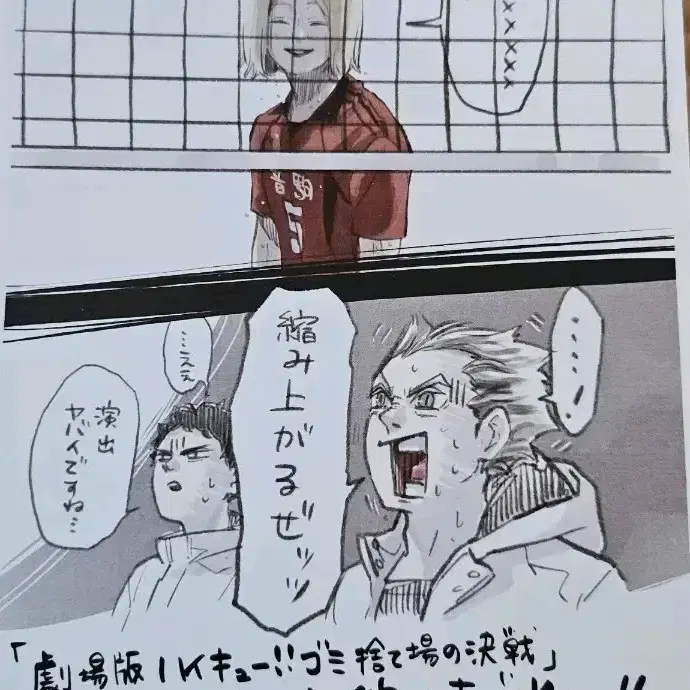 ××××××
音駒
5
……!
縮み上がるぜッッ
…ええ
演出
ヤバイですね…
「劇場版ハイキュー!!ゴミ捨て場の決戦」